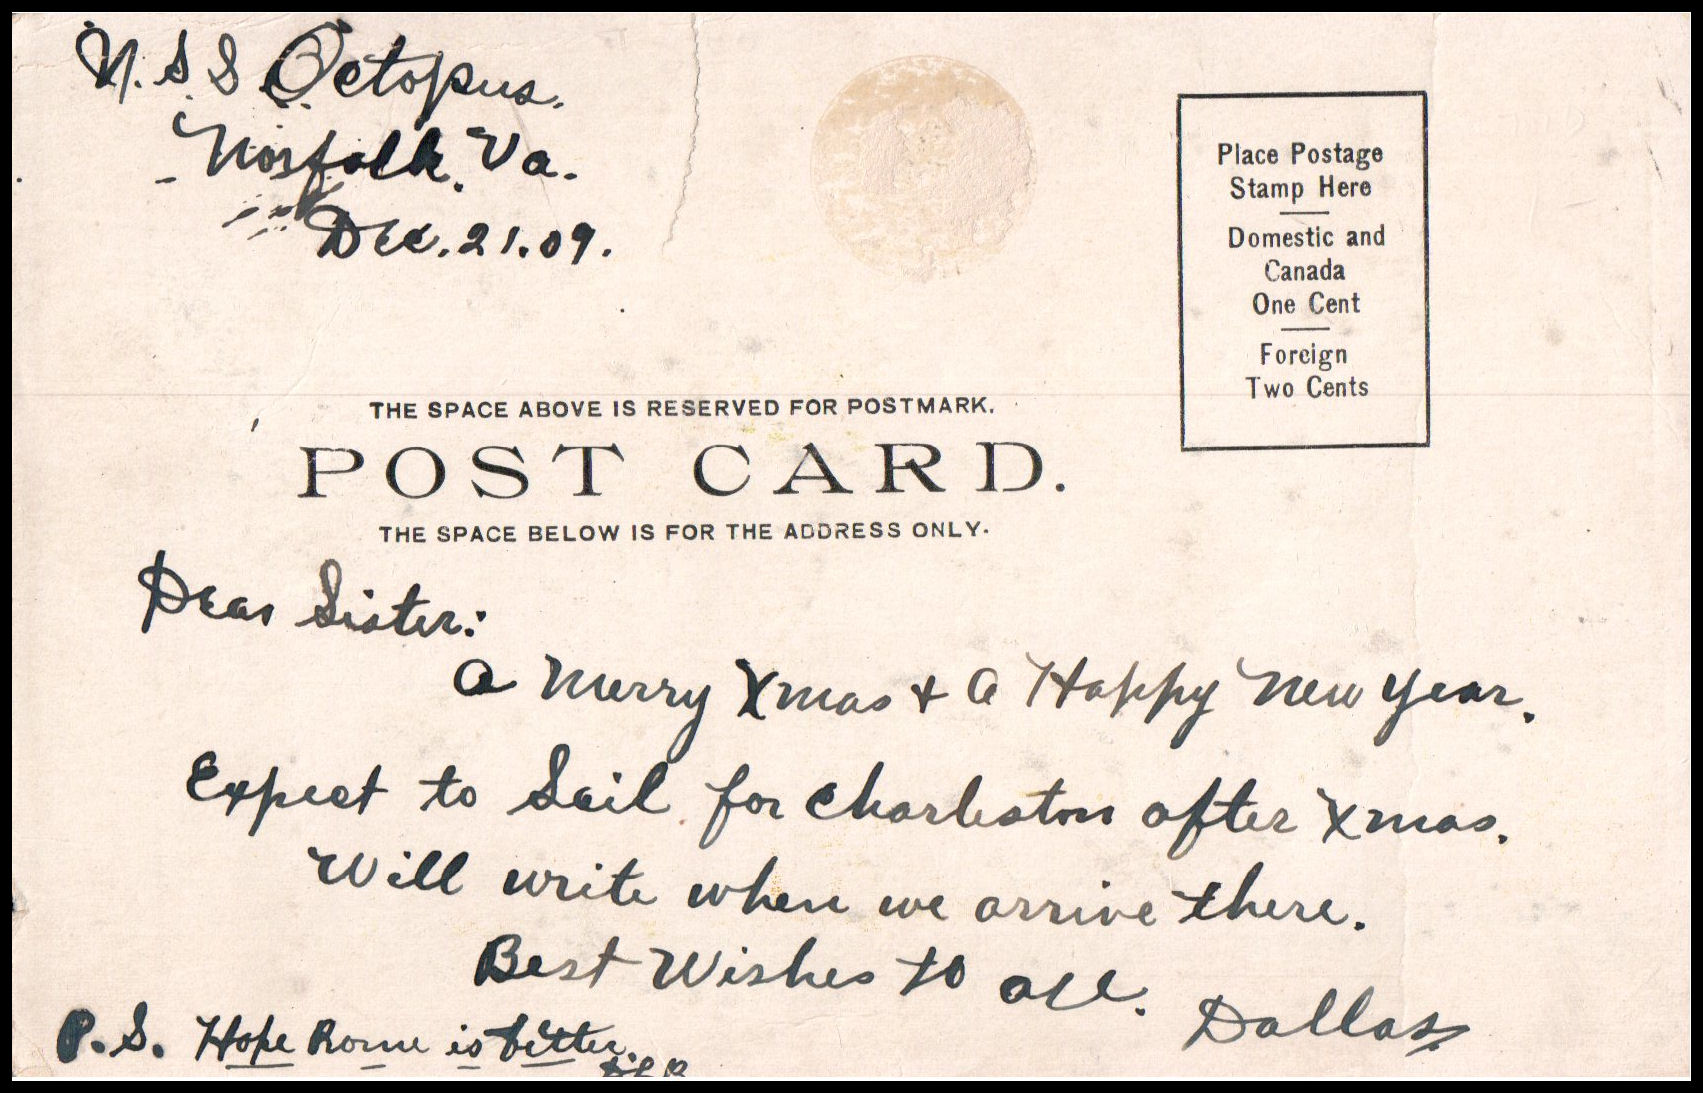 U.S.S Octopus.
Norfolk, Va.
Dec. 21. 09.
Place Postage
Stamp Here
Domestic and
Canada
One Cent
Foreign
Two Cents
THE SPACE ABOVE IS RESERVED FOR POSTMARK.
POST CARD.
THE SPACE BELOW IS FOR THE ADDRESS ONLY.
Dear Sister:
A Merry Xmas + A Happy New Year.
Expect to Sail for Charleston after Xmas.
Will write when we arrive there.
Best Wishes to all.
Dallas
P.S. Hope Rome is better.